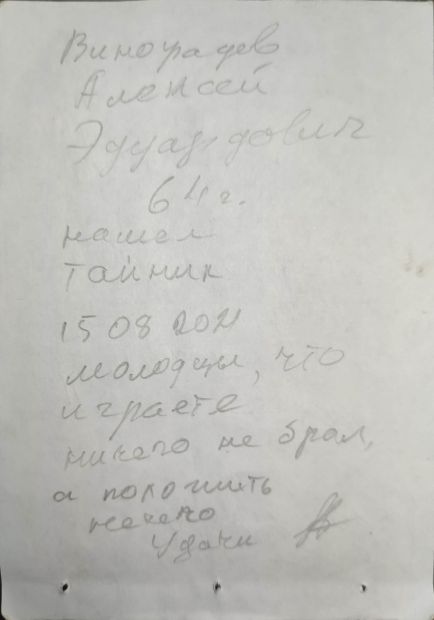 Виноградов
Алексей
Эдуардович
64 г.
нашел
тайник
15 08 2021
молодцы, что
играете
ничего не брал,
а положить
нечего
Удачи